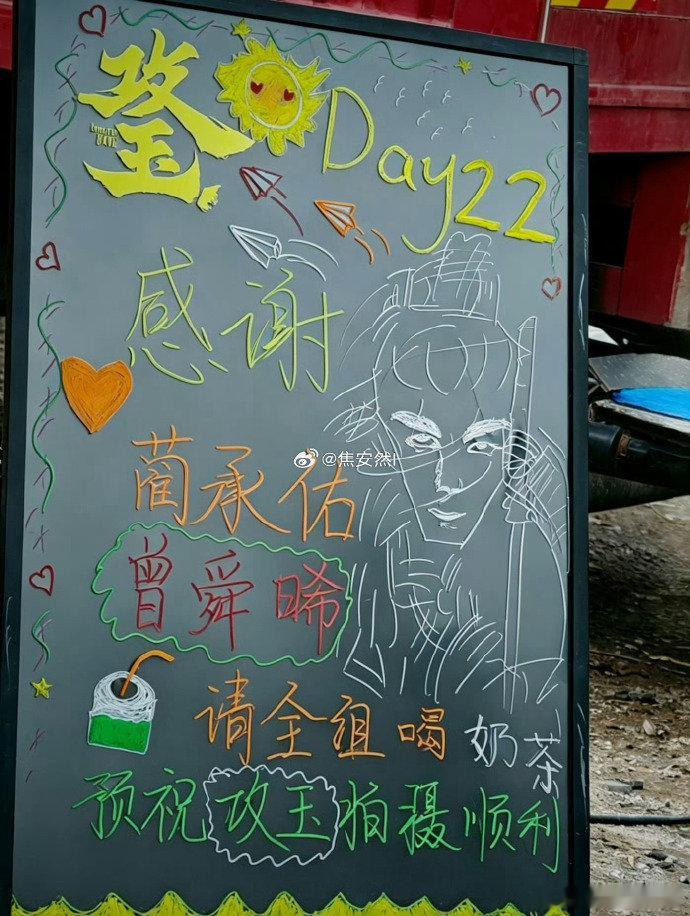 攻玉
Day22
感谢
蔺承佑
@焦安然I
曾舜晞
请全组喝奶茶
预祝攻玉拍摄顺利